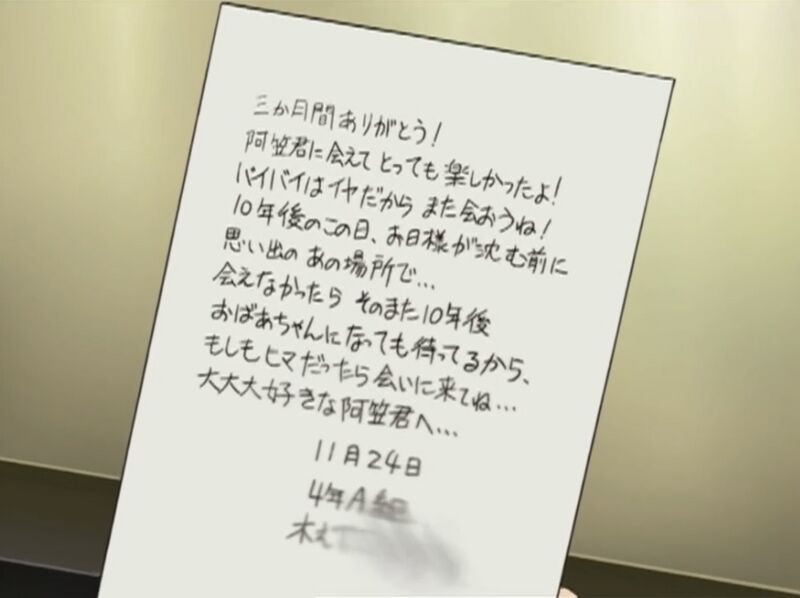 三か月間ありがとう！
阿笠君に会えてとっても楽しかったよ！
バイバイはイヤだから また会おうね！
10年後のこの日、お日様が沈む前に
思い出のあの場所で…
会えなかったら そのまた10年後
おばあちゃんになっても待ってるから、
もしもヒマだったら会いに来てね…
大大大好きな阿笠君へ…
11月24日
4年A組
木